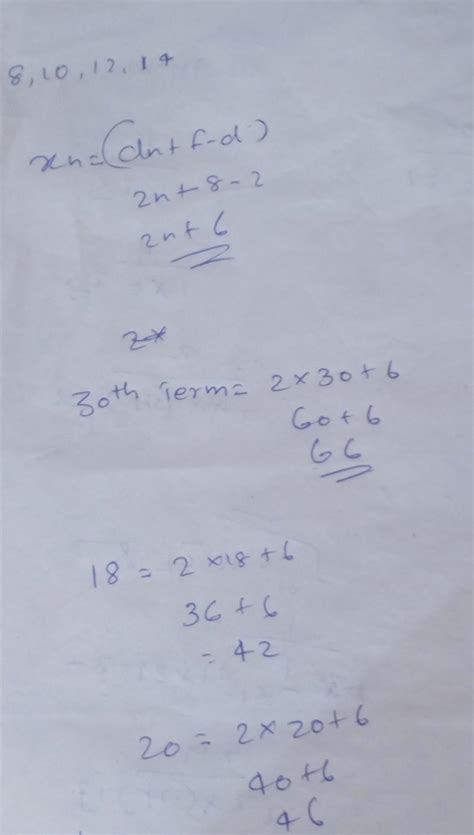 8, 10, 12, 14
xn = (dn + f - d)
2n + 8 - 2
2n + 6
30th Term = 2 × 30 + 6
60 + 6
66
18 = 2 × 18 + 6
36 + 6
= 42
20 = 2 × 20 + 6
40 + 6
46